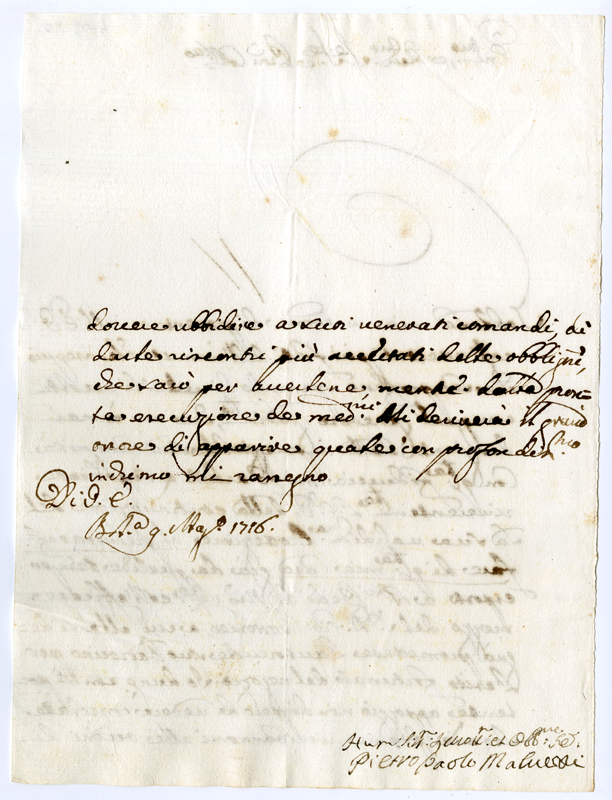 dovere ubbidire a suoi venerati comandi, di
darle riscontri più accertati delle obblig.ni,
che sarò per avertene mentre dalla pron-
ta esecuzione de med.mi Mi deriverà il grand.mo
onore di apparire quale con profondis.mo
inchino mi rassegno
Di V. E.
9. Mag.o 1716.
Hum.
Pietro Paolo Malvezzi